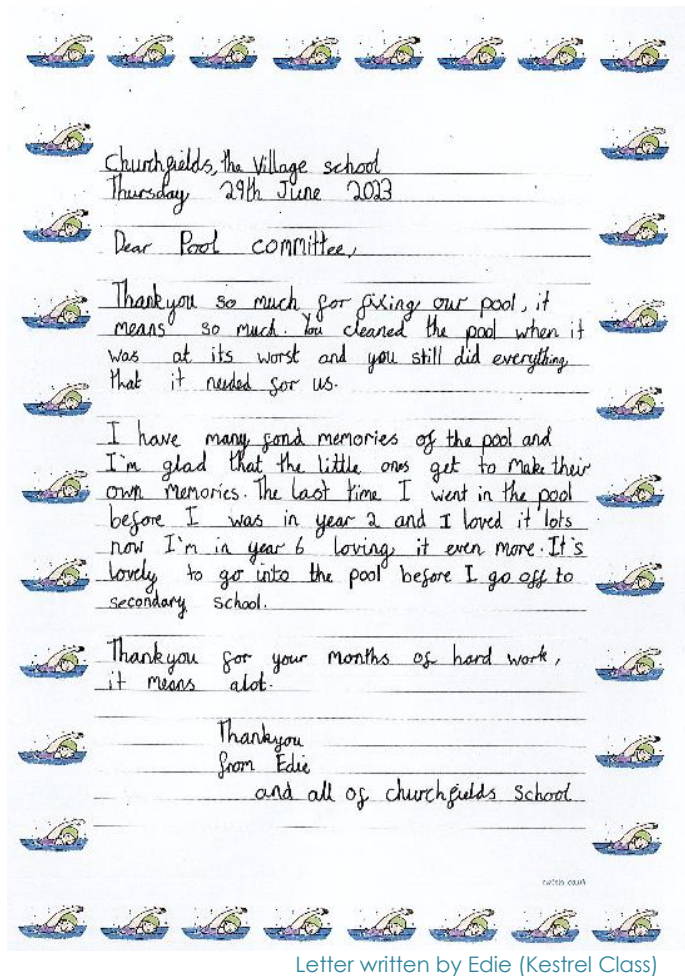 Churchfields, the Village school
Thursday 29th June 2023
Dear Pool committee,
Thankyou so much for fixing our pool, it
means so much. You cleaned the pool when it
was at its worst and you still did everything
that it needed for us.
I have many fond memories of the pool and
I'm glad that the little ones get to make their
own memories. The last time I went in the pool
before I was in year 2 and I loved it lots
now I'm in year 6 loving it even more. It's
lovely to go into the pool before I go off to
secondary school.
Thankyou for your months of hard work,
it means alot.
Thankyou
from Edie
and all of churchfields School
Letter written by Edie (Kestrel Class)